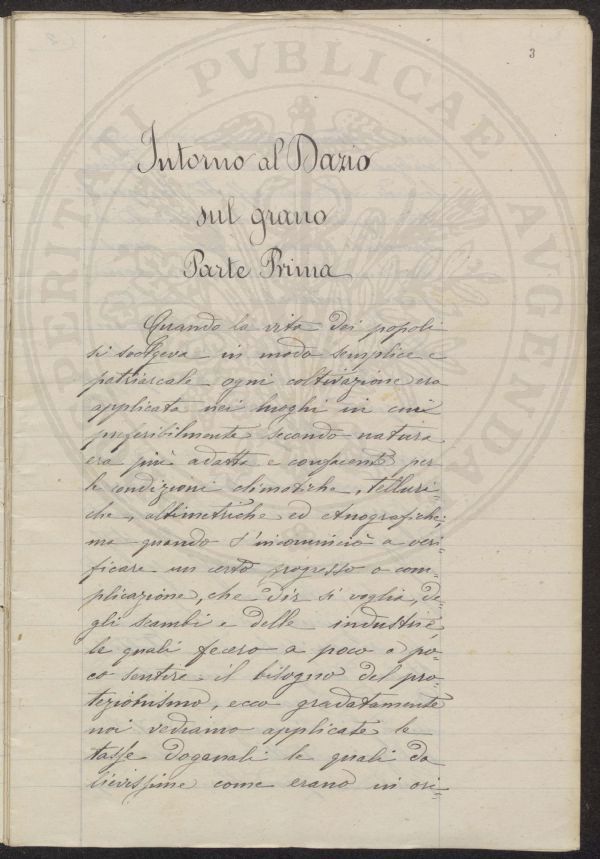 3
Intorno al Dazio
sul grano
Parte Prima
Quando la vita dei popoli
si svolgeva in modo semplice e
patriarcale ogni coltivazione era
applicata nei luoghi in cui
preferibilmente secondo natura
era più adatta e confacente per
le condizioni climatiche, telluri-
che, altimetriche ed etnografiche,
ma quando s'incominciò a veri-
ficare un certo progresso o com-
plicazione, che dir si voglia, de-
gli scambi e delle industrie
le quali fecero a poco a po-
co sentire il bisogno del pro-
tezionismo, ecco gradatamente
noi vediamo applicate le
tasse doganali le quali da
lievissime come erano in ori-
PROSPERITATI PVBLICAE AVGENDAE